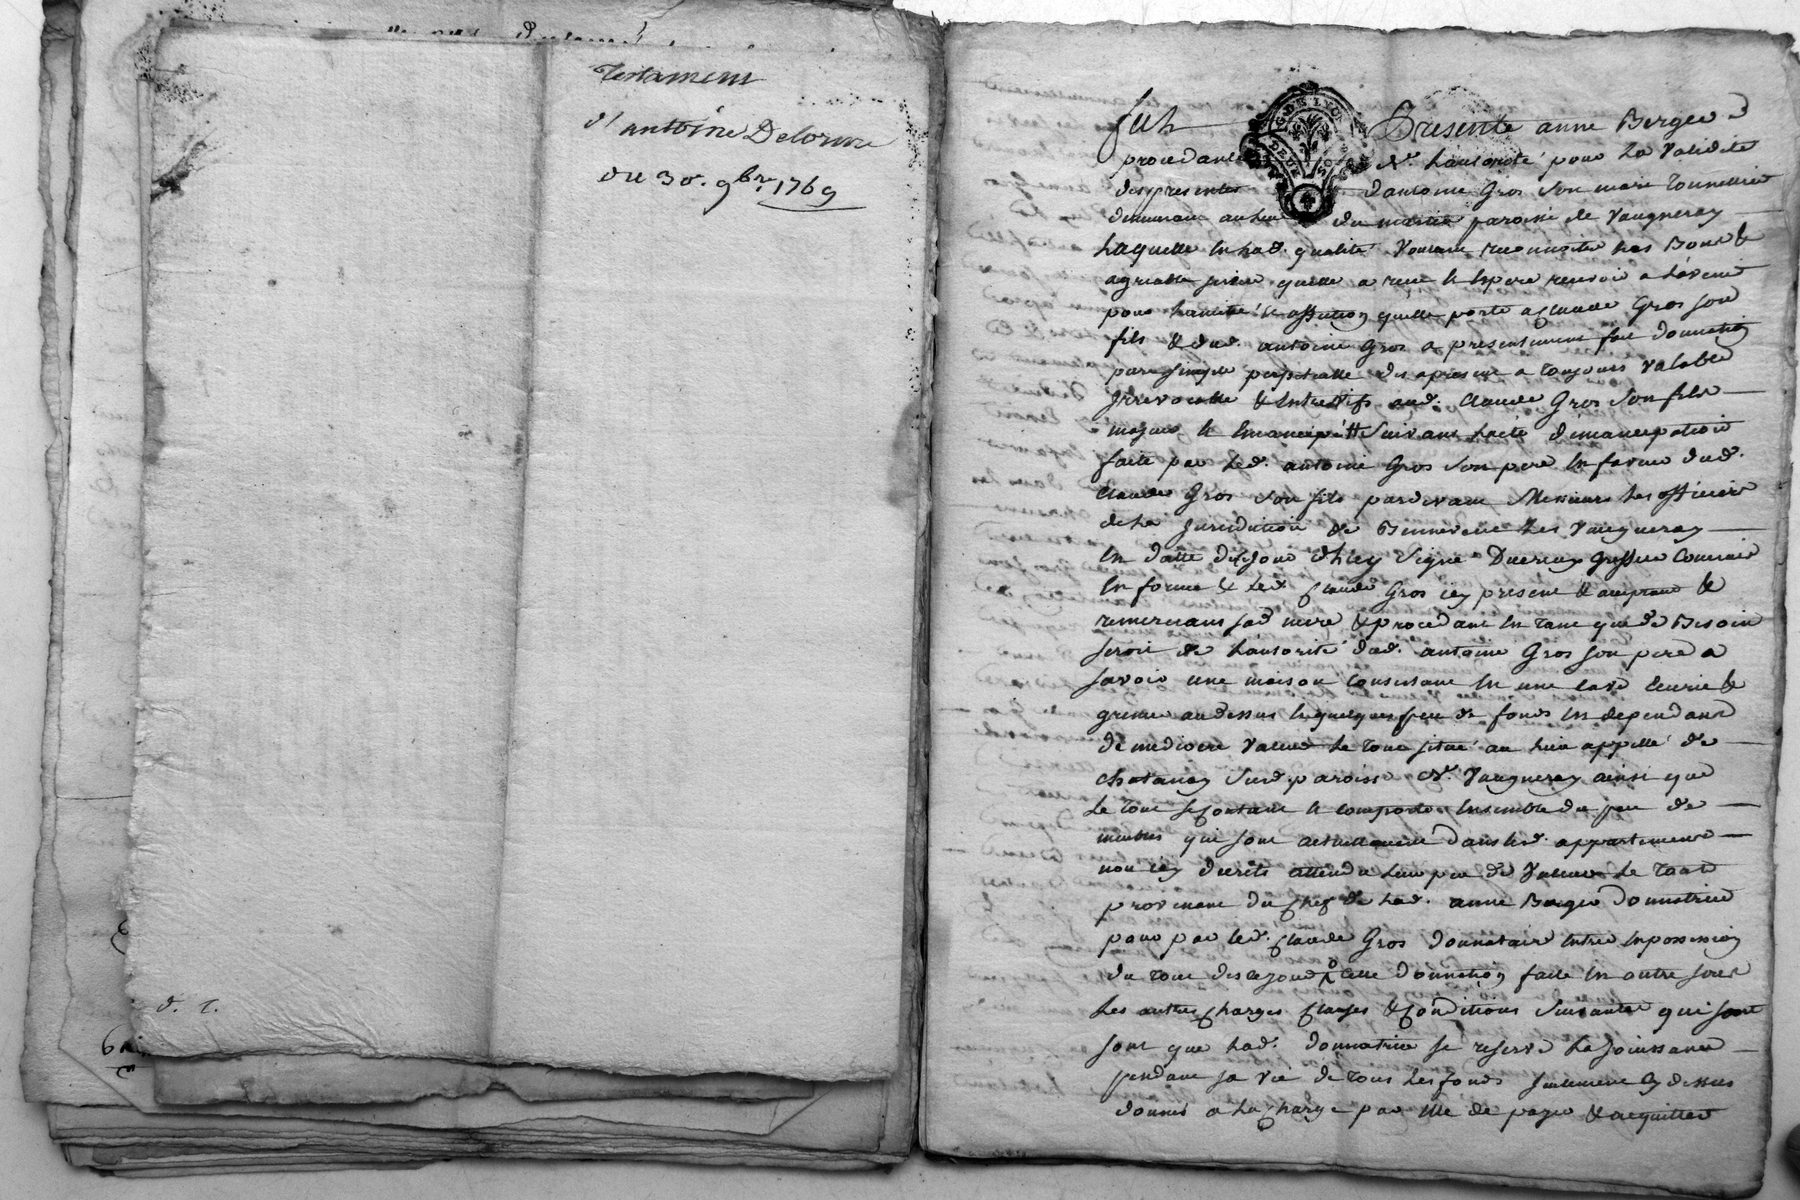 Testament
d'antoine Delorme
du 30. 9bre 1769
d. t.
GD'S LYON
DEUX SOLS
fut Presente anne Berger
procedante de Lautorité pour La validité
des presentes d'antoine Gros son mari tonnellier
demeurant au lieu du paroisse de vaugneray
Laquelle en lad. qualité voulant reconnoitre Les Bons &
agreable services quelle a reçu & espere recevoir a Lavenir
pour Lamitié & affection quelle porte a Claude Gros son
fils & dud. antoine Gros a presentement fait donnation
pure simple perpetuelle des apresent a toujours valable
Irrevocable & entrevifs aud. Claude Gros son fils
majeur & emancipé suivant Lacte démancipation
faite par led. antoine Gros son pere en faveur dud.
Claude Gros son fils pardevant Messieurs Les officiers
de La Jurisdiction de Les vaugneray
en datte du jour dhier signé greffier
en forme & led. Claude Gros icy present & acceptant &
remerciant sad. mere & procedant en tant que de Besoin
seroit de Lautorité dud. antoine Gros son pere a
savoir une maison consistant en une cave Ecurie &
grenier audessus & quelques peu de fonds en dependant
de mediocre valeur le tout situé au lieu appellé de
chatanay sud. paroisse de vaugneray ainsi que
Le tout se contient & comporte ensemble du peu de
meubles qui sont actuellement dans led. appartement
non icy decrits attendu leur peu de valeur Le tout
provenant du chef de Lad. anne Berger donnatrice
pour par led. Claude Gros donnataire entrer en possession
du tout des ce jour cette donnation faite en outre sous
Les autres charges clauses & conditions suivantes qui sont
sont que Lad. donnatrice se reserve La jouissance
pendant sa vie de tous Les fonds seulement cy dessus
donnés a La charge par elle de payer & acquitter